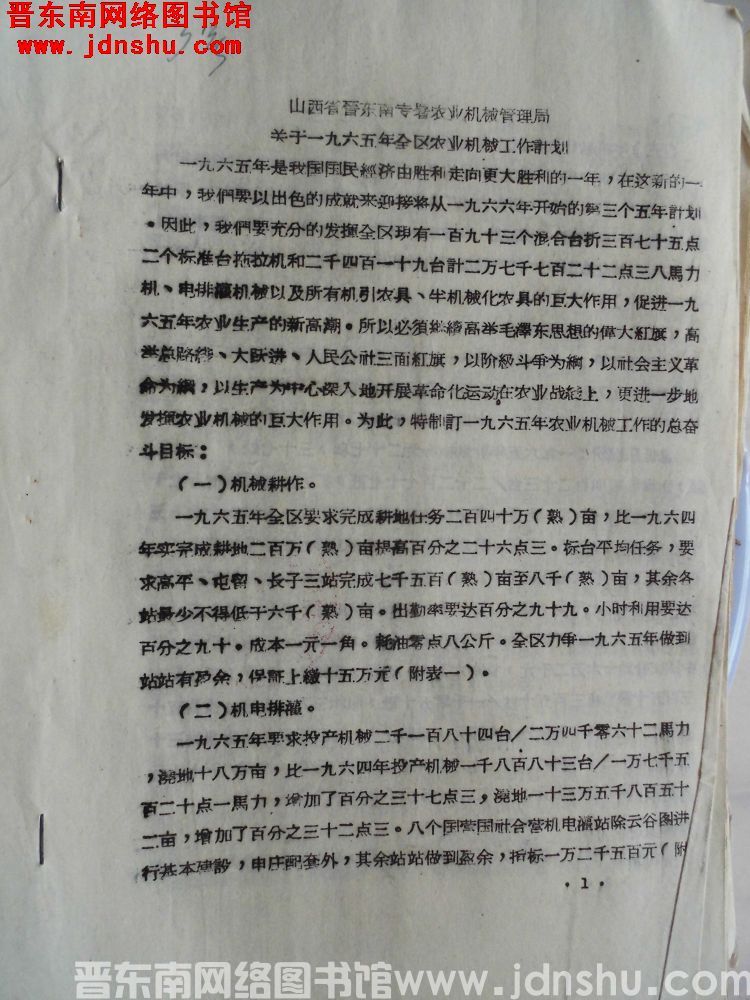 晋东南网络图书馆
www.jdnshu.com
山西省晋东南专署农业机械管理局
关于一九六五年全区农业机械工作計划
一九六五年是我国国民經济由胜利走向更大胜利的一年，在这新的一
年中，我們要以出色的成就来迎接将从一九六六年开始的第三个五年計划
。因此，我們要充分的发揮全区现有一百九十三个混合台折三百七十五点
二个标准台拖拉机和二千四百一十九台計二万七千七百二十二点三八馬力
机、电排灌机械以及所有机引农具、半机械化农具的巨大作用，促进一九
六五年农业生产的新高潮。所以必須継續高举毛澤东思想的偉大紅旗，高
举总路綫、大跃进、人民公社三面紅旗，以阶級斗爭为綱，以社会主义革
命为綱，以生产为中心深入地开展革命化运动在农业战綫上，更进一步地
发揮农业机械的巨大作用。为此，特制訂一九六五年农业机械工作的总奋
斗目标：
（一）机械耕作。
一九六五年全区要求完成耕地任务二百四十万（熟）亩，比一九六四
年实完成耕地二百万（熟）亩提高百分之二十六点三。标台平均任务，要
求高平、屯留、长子三站完成七千五百（熟）亩至八千（熟）亩，其余各
站最少不得低于六千（熟）亩。出勤率要达百分之九十九。小时利用要达
百分之九十。成本一元一角。耗油零点八公斤。全区力爭一九六五年做到
站站有盈余，保証上繳十五万元（附表一）。
（二）机电排灌。
一九六五年要求投产机械二千一百八十四台／二万四千零六十二馬力
，澆地十八万亩，比一九六四年投产机械一千八百八十三台／一万七千五
百二十点一馬力，增加了百分之三十七点三，澆地一十三万五千八百五十
二亩，增加了百分之三十二点三。八个国营国社合营机电灌站除云谷图进
行基本建設，申庄配套外，其余站站做到盈余，指标一万二千五百元（附
·1·
晋东南网络图书馆www.jdnshu.com